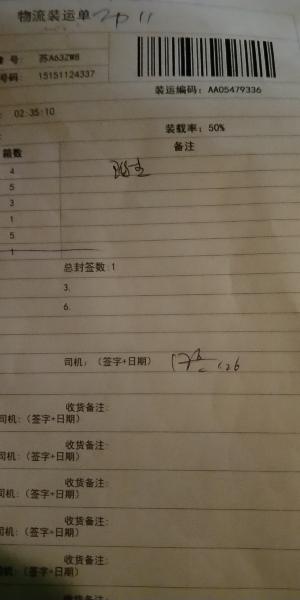 物流装运单 2011
号: 苏A63ZW8
号码: 15151124337
装运编码: AA05479336
: 02:35:10
装载率: 50%
箱数
备注
4
5
3
1
5
1
总封签数:1
3.
6.
司机: (签字+日期)
收货备注:
司机:(签字+日期)
收货备注:
司机:(签字+日期)
收货备注:
司机:(签字+日期)
收货备注:
司机:(签字+日期)
收货备注:
司机:(签字+日期)
收货备注: